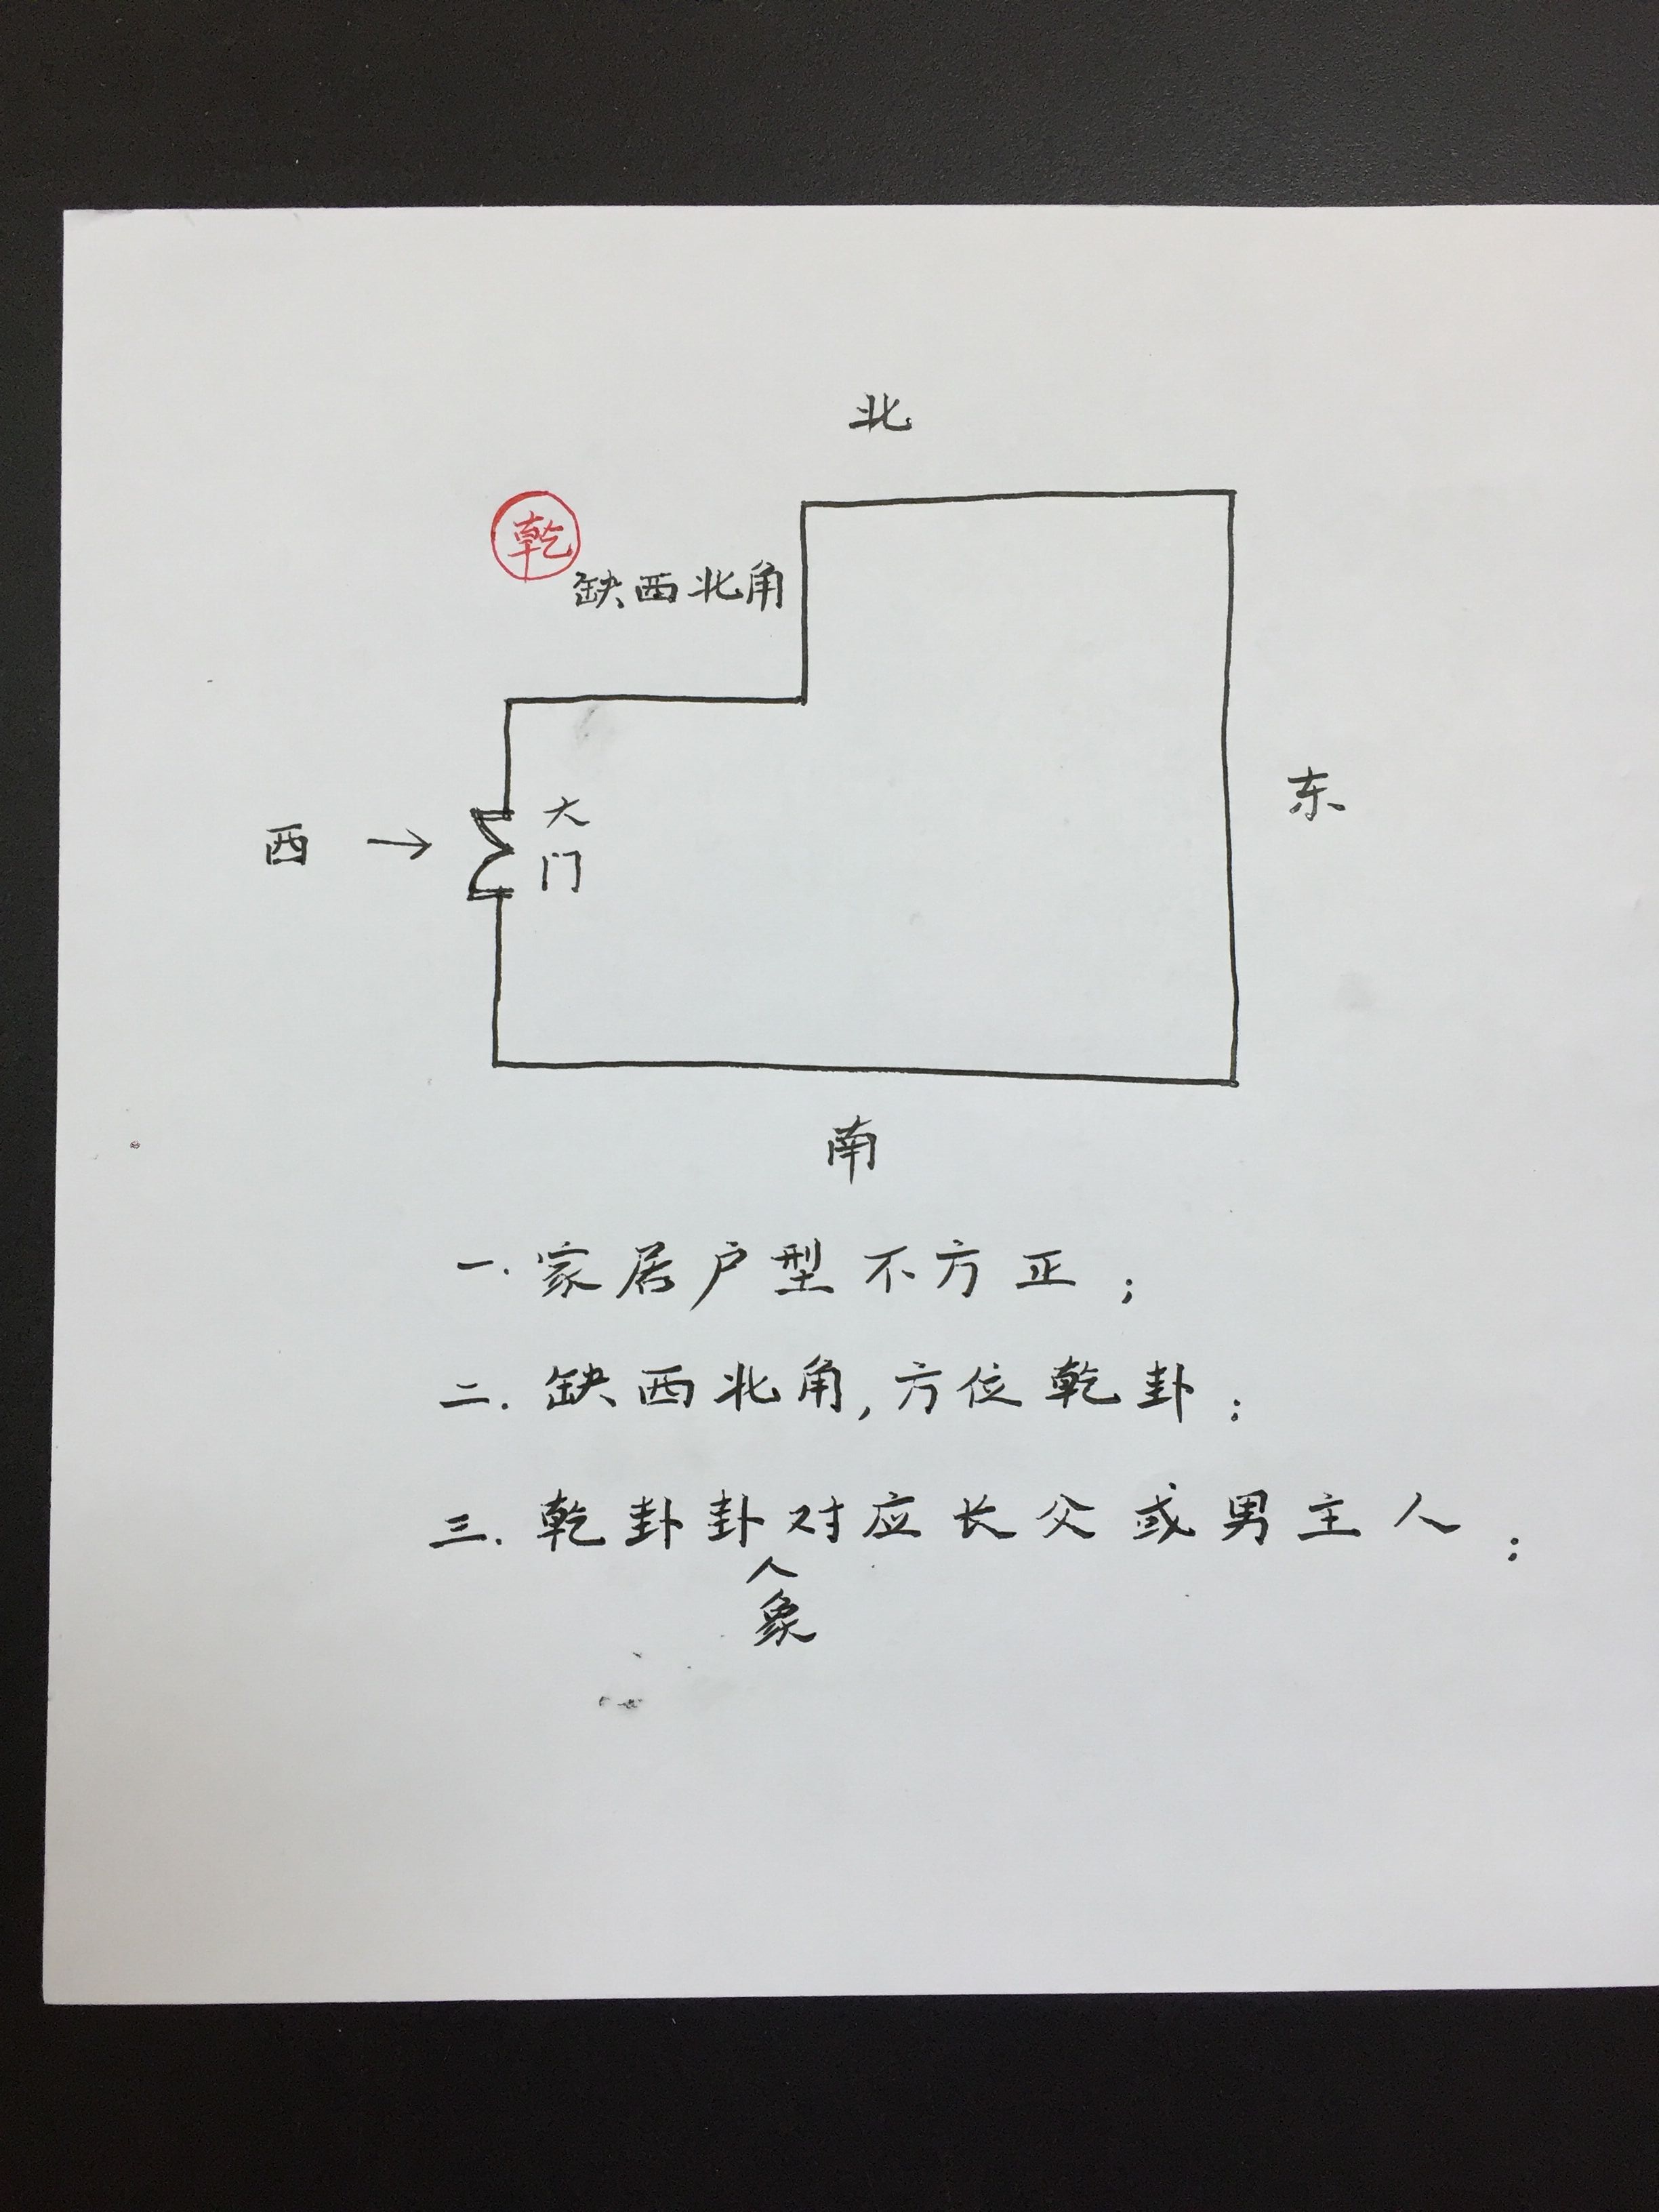 北
乾
缺西北角
东
西 →
大
门
南
一.家居户型不方正；
二.缺西北角,方位乾卦；
三.乾卦卦对应长父或男主人；
人
象